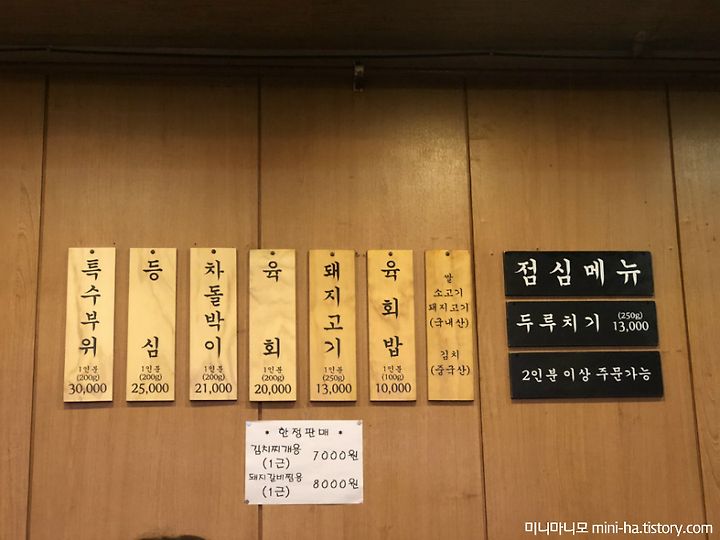 특수부위
1인분
(200g)
30,000
등심
1인분
(200g)
25,000
차돌박이
1인분
(200g)
21,000
육회
1인분
(200g)
20,000
돼지고기
1인분
(250g)
13,000
육회밥
1인분
(100g)
10,000
쌀
소고기
돼지고기
(국내산)
김치
(중국산)
점심메뉴
두루치기 (250g) 13,000
2인분 이상 주문가능
• 한정판매 •
김치찌개용 7000원
(1근)
돼지갈비찜용 8000원
(1근)
미니마니모 mini-ha.tistory.com